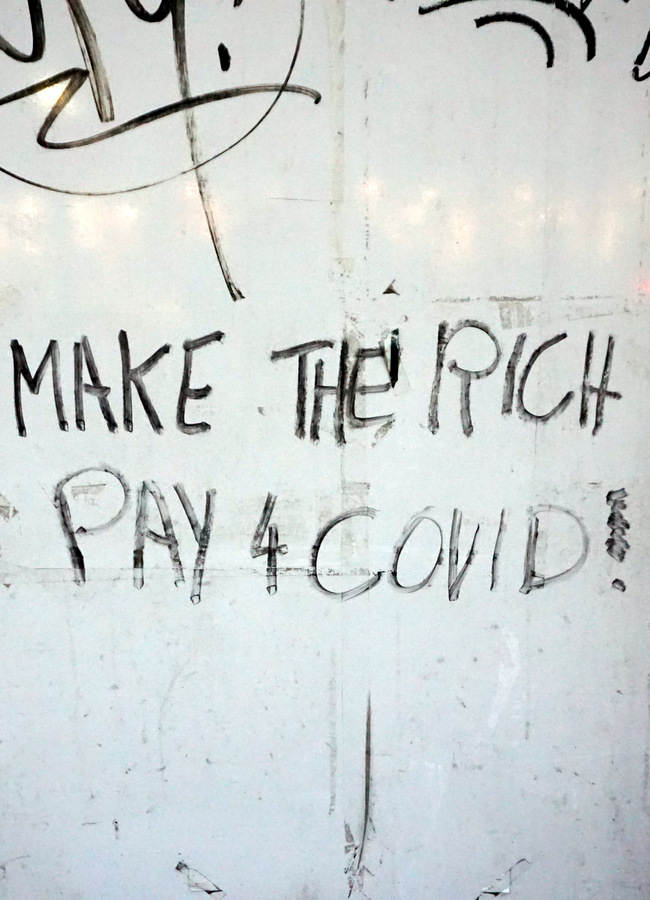 MAKE THE RICH
PAY 4 COVID!